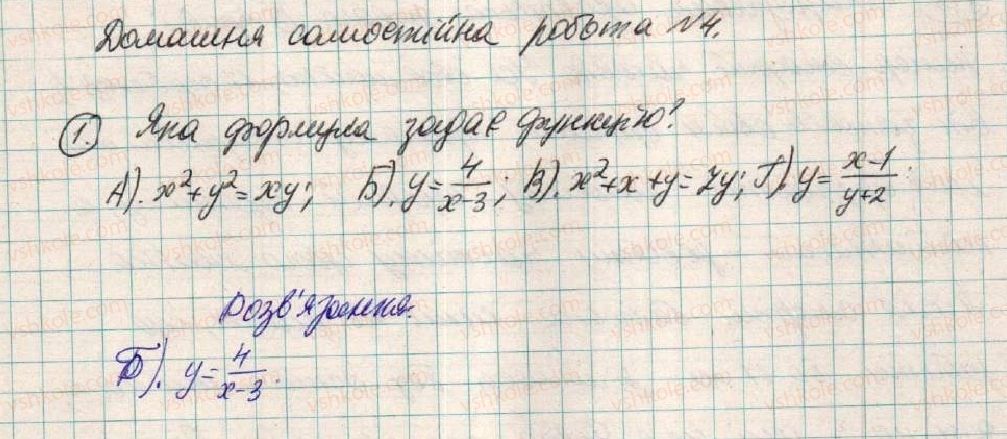 Домашня самостійна робота №4.
1. Яка формула задає функцію?
А). x²+y²=xy; Б). y=4/(x-3); В). x²+x+y=7y; Г). y=(x-1)/(y+2).
Розв'язання.
Б). y=4/(x-3).